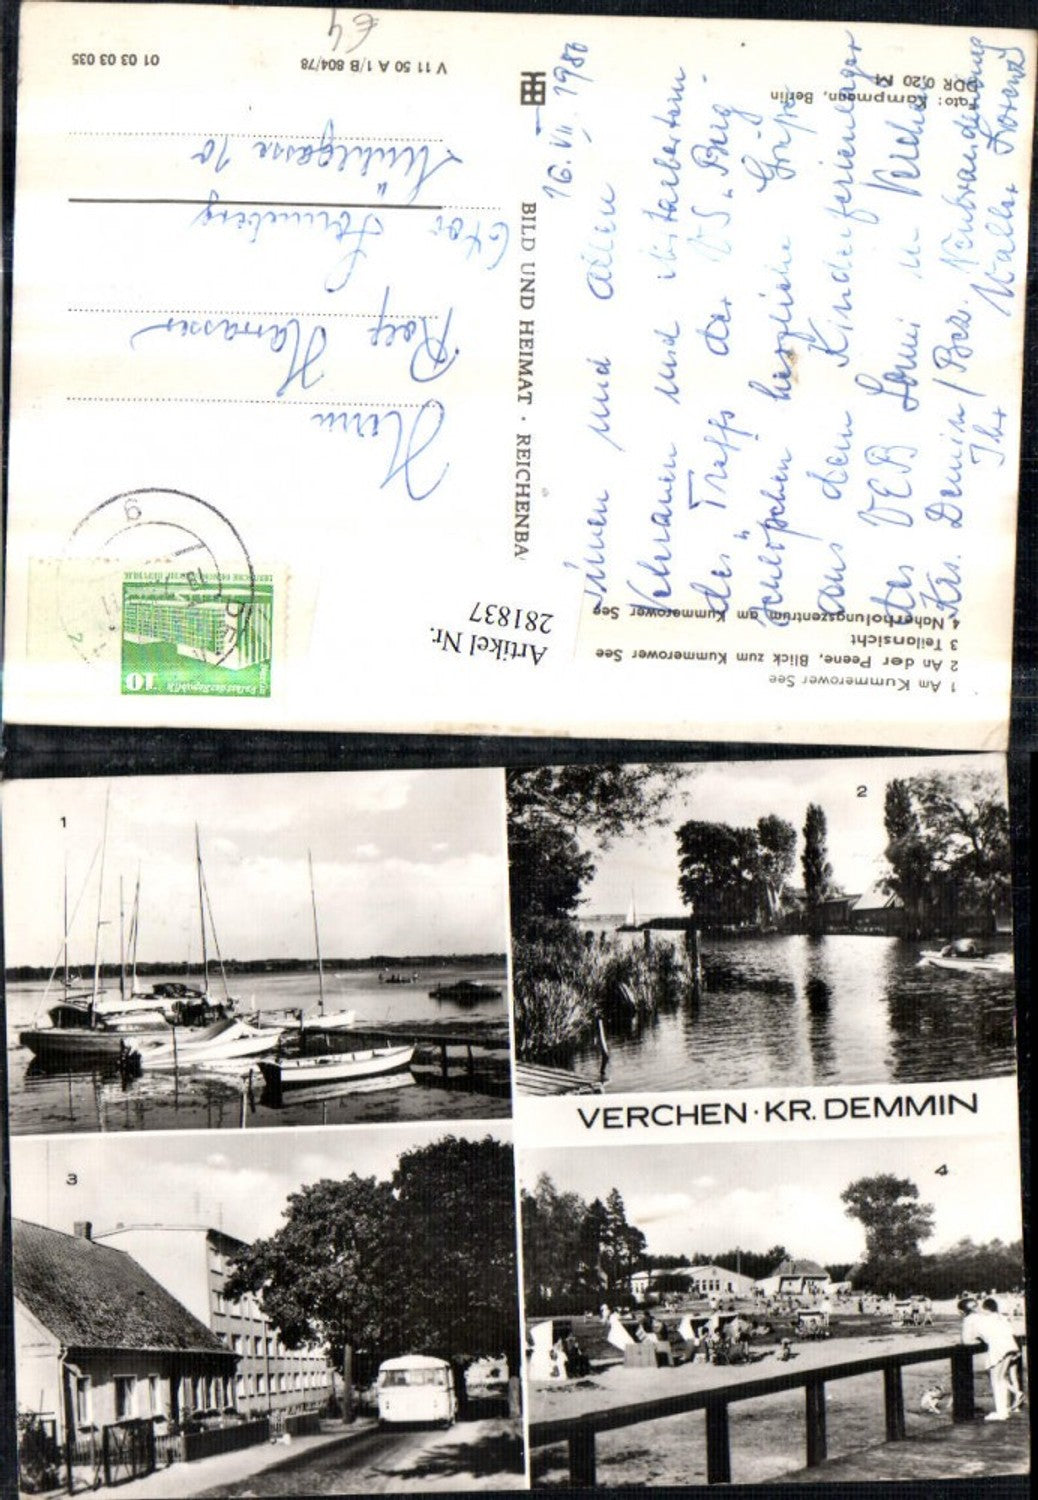 1 Am Kummerower See
2 An der Peene, Blick zum Kummerower See
3 Teilansicht
4 Naherholungszentrum am Kummerower See
Artikel Nr.
281837
10
Palast der Republik
DEUTSCHE DEMOKRATISCHE REPUBLIK
16. VII. 1980
Ihnen und allen
Veteranen und Mitarbeitern
des Treffs der VS "Burg
schlößchen" herzliche Grüße
aus dem Kinderferienlager
des VEB Lowi in Verchen
Krs. Demmin / Bez. Neubrandenburg
Ihr Walter
Herrn
Rolf
Sonneberg
Mühlgasse 10
BILD UND HEIMAT · REICHENBA
Foto: Kampmann, Berlin
DDR 0,20 M
V 11 50 A 1/B 804/78
01 03 03 035
€4
1
2
VERCHEN · KR. DEMMIN
3
4